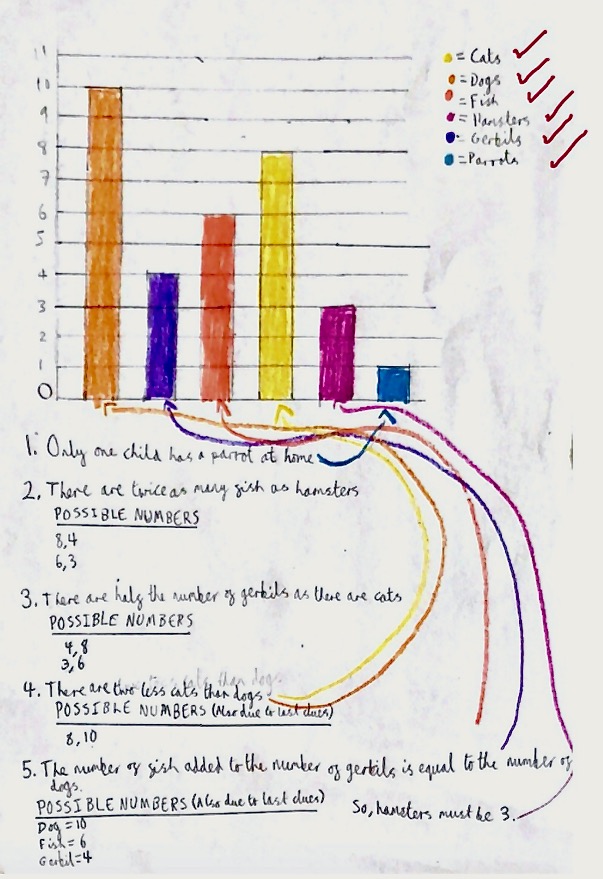 11
10
9
8
7
6
5
4
3
2
1
0
= Cats
= Dogs
= Fish
= Hamsters
= Gerbils
= Parrots
1. Only one child has a parrot at home
2. There are twice as many fish as hamsters
POSSIBLE NUMBERS
8,4
6,3
3. There are half the number of gerbils as there are cats
POSSIBLE NUMBERS
4,8
3,6
cats than dogs
4. There are two less cats than dogs.
POSSIBLE NUMBERS (Also due to last clues)
8,10
5. The number of fish added to the number of gerbils is equal to the number of
dogs.
POSSIBLE NUMBERS (Also due to last clues)
Dog = 10
Fish = 6
Gerbil = 4
So, hamsters must be 3.